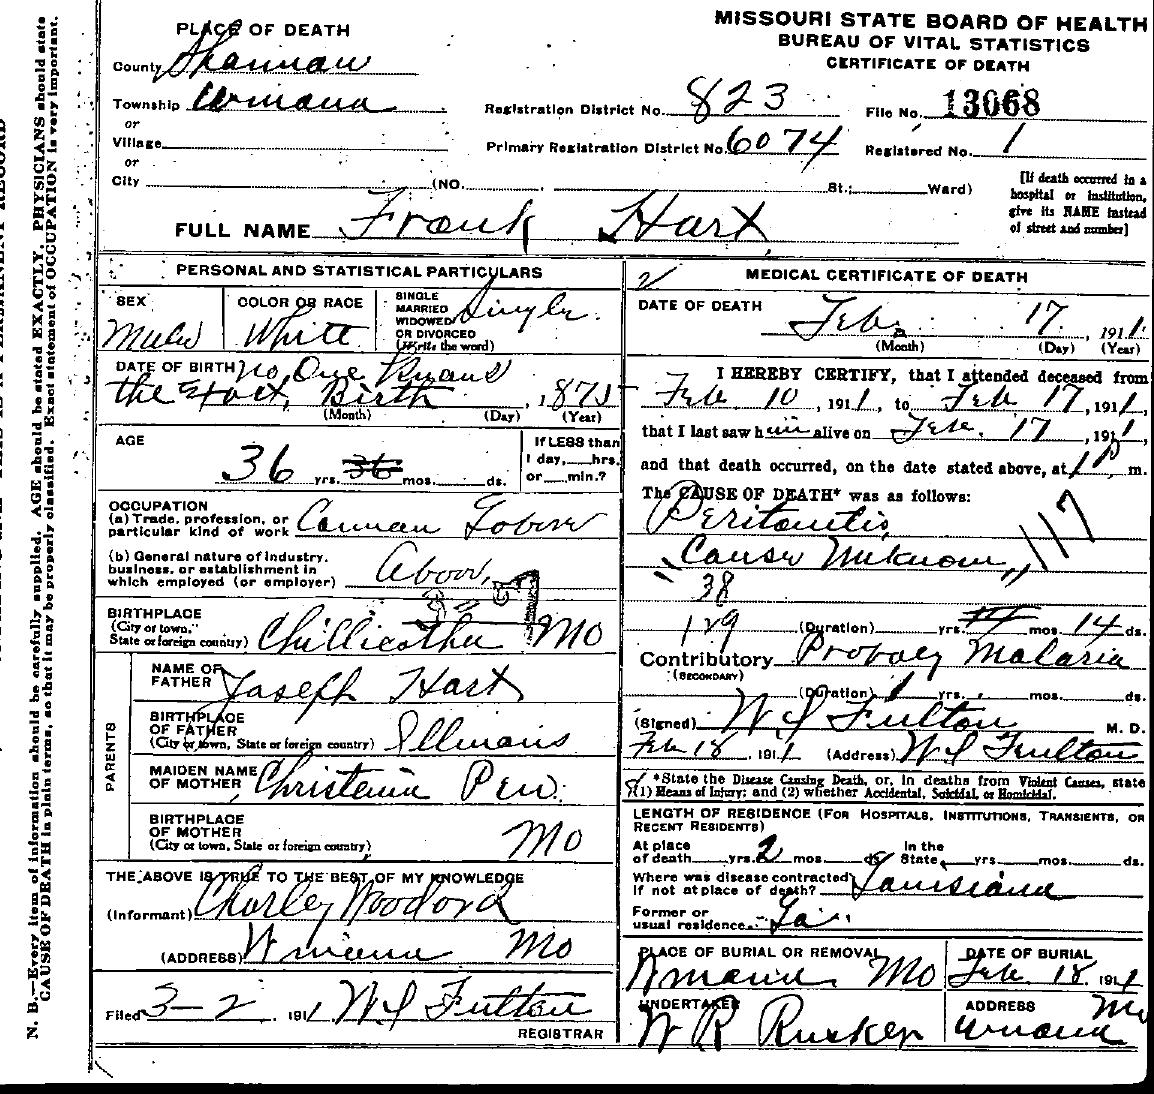 MISSOURI STATE BOARD OF HEALTH
BUREAU OF VITAL STATISTICS
CERTIFICATE OF DEATH
PLACE OF DEATH
County Shannon
Township
or
Village
or
City (NO. St.; Ward)
Registration District No. 823
File No. 13068
Primary Registration District No. 6074
Registered No. 1
[If death occurred in a
hospital or institution,
give its NAME instead
of street and number]
FULL NAME Frank Hart
PERSONAL AND STATISTICAL PARTICULARS
SEX
Male
COLOR OR RACE
White
SINGLE
MARRIED
WIDOWED
OR DIVORCED
(Write the word)
Single
DATE OF BIRTH no one Knows
the Birth, 1875
(Month) (Day) (Year)
AGE
36 yrs. 36 mos. ds.
If LESS than
1 day, hrs.
or min.?
OCCUPATION
(a) Trade, profession, or
particular kind of work Common
(b) General nature of industry,
business, or establishment in
which employed (or employer)
BIRTHPLACE
(City or town,
State or foreign country) Chillicothe Mo
PARENTS
NAME OF
FATHER Joseph Hart
BIRTHPLACE
OF FATHER
(City or town, State or foreign country) Illinois
MAIDEN NAME
OF MOTHER
BIRTHPLACE
OF MOTHER
(City or town, State or foreign country) Mo
THE ABOVE IS TRUE TO THE BEST OF MY KNOWLEDGE
(Informant) Charley
(ADDRESS) Mo
Filed 3-2, 1911 W S Fulton
REGISTRAR
MEDICAL CERTIFICATE OF DEATH
DATE OF DEATH
Feb. 17, 1911.
(Month) (Day) (Year)
I HEREBY CERTIFY, that I attended deceased from
Feb 10, 1911, to Feb 17, 1911,
that I last saw him alive on Feb. 17, 1911,
and that death occurred, on the date stated above, at 1 P m.
The CAUSE OF DEATH* was as follows:
Peritonitis,
Cause Unknown, 117
38
129 (Duration) yrs. mos. 14 ds.
Contributory Probaly Malaria
(SECONDARY)
(Duration) 1 yrs. mos. ds.
(Signed) W S Fulton M. D.
Feb 18, 1911 (Address) W S Fulton
*State the Disease Causing Death, or, in deaths from Violent Causes, state
(1) Means of Injury; and (2) whether Accidental, Suicidal, or Homicidal.
LENGTH OF RESIDENCE (FOR HOSPITALS, INSTITUTIONS, TRANSIENTS, OR
RECENT RESIDENTS)
At place
of death yrs. 2 mos. ds.
In the
State, yrs. mos. ds.
Where was disease contracted
if not at place of death? Louisiana
Former or
usual residence La.
PLACE OF BURIAL OR REMOVAL
Mo
DATE OF BURIAL
Feb. 18, 1911
UNDERTAKER
W R Rucker
ADDRESS
Mo
N. B.—Every item of information should be carefully supplied. AGE should be stated EXACTLY. PHYSICIANS should state
CAUSE OF DEATH in plain terms, so that it may be properly classified. Exact statement of OCCUPATION is very important.